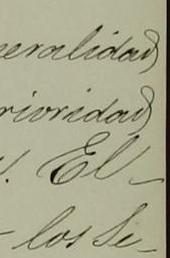 neralidad
rioridad
. El
los Se-